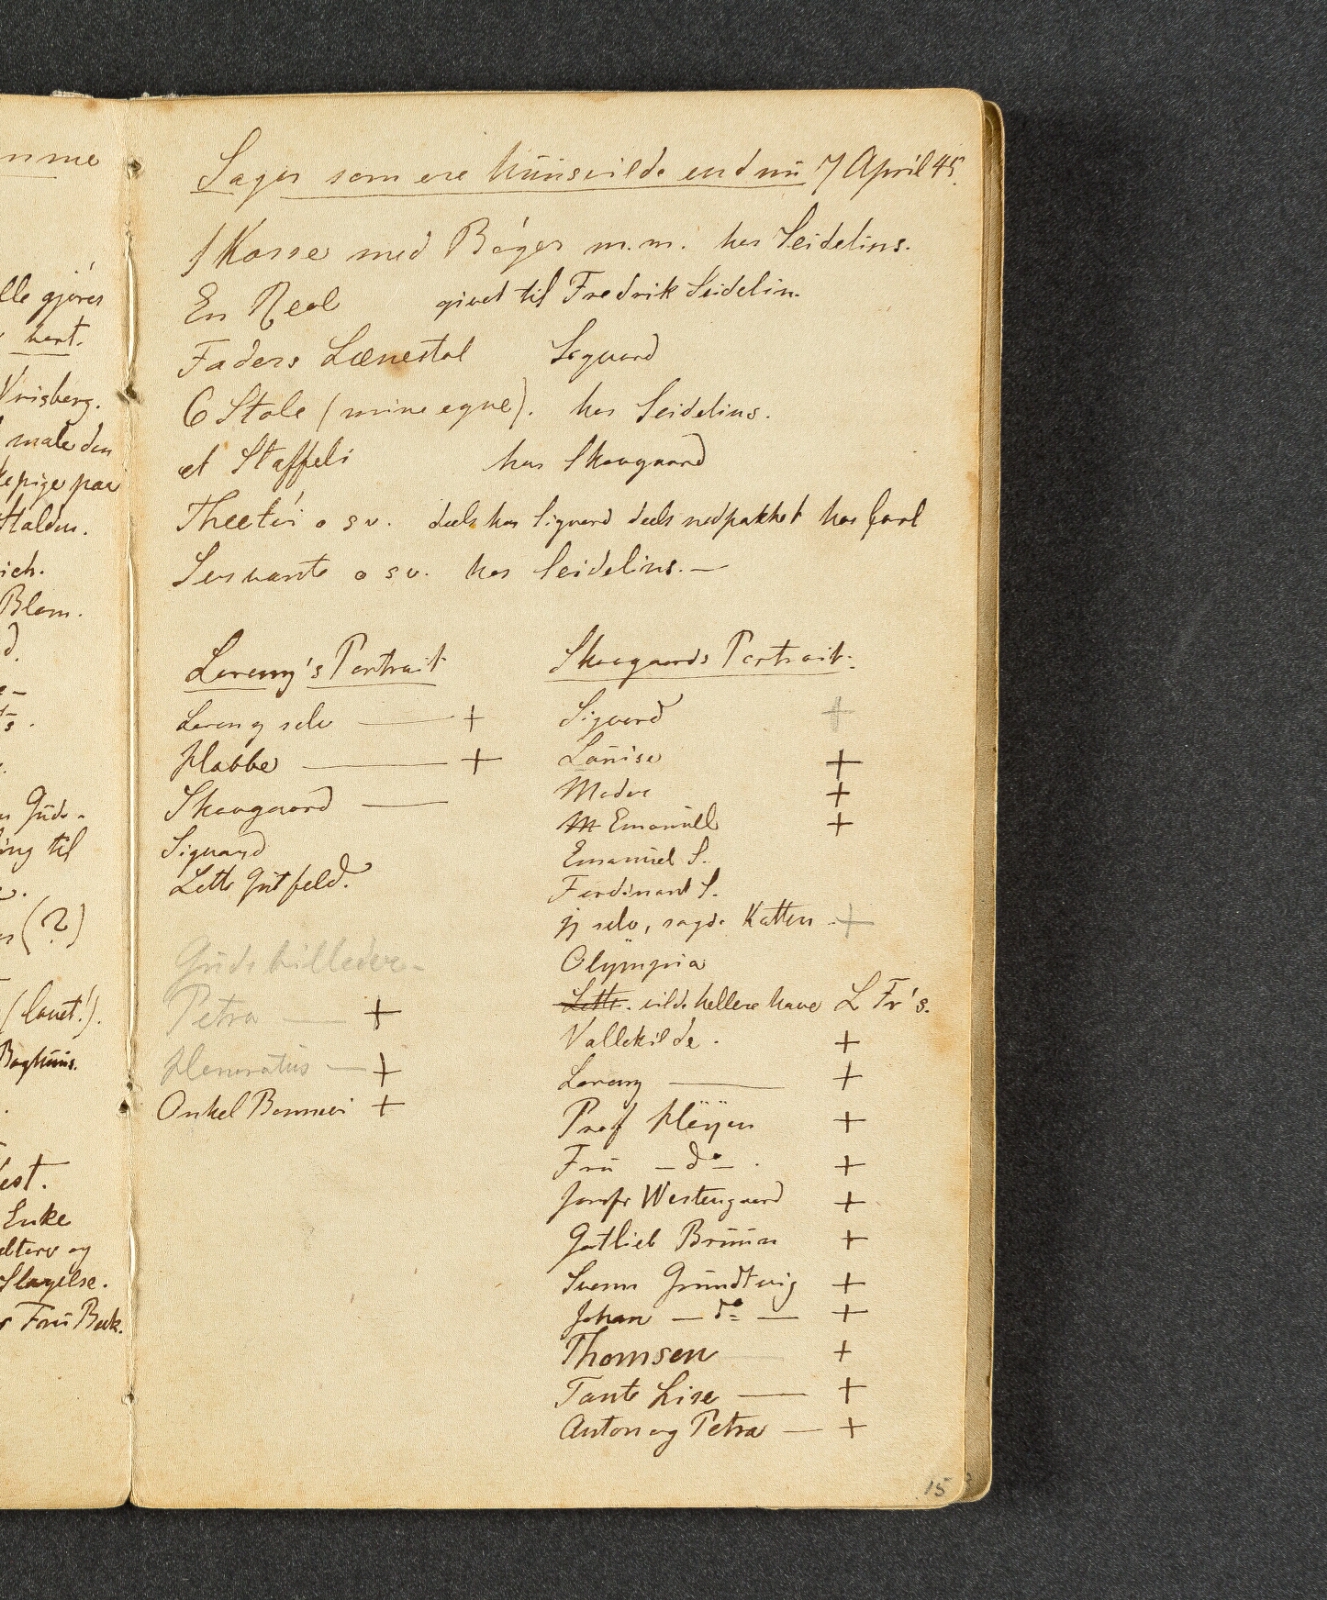 nme
lle gjöres
hart.
Vrisberg.
male den
kepige paa
Stalden.
ich.
Blom.
d.
Gude-
ing til
(?)
(lovet!).
Baghuus.
est.
Enke
og
Slagelse.
Fru Beck.
Sager som ere huusvilde endnu 7 April 45.
1 Kasse med Böger m.m. hos Seidelins.
En Reol givet til Fredrik Seidelin.
Faders Lænestol Sigvard
6 Stole (mine egne). hos Seidelins.
et Staffeli hos Skovgaard
Theetöi o sv. deels hos Sigvard deels nedpakket hos Carl
Servante o sv. hos Seidelins. —
Lorenz's Portrait
Lorenz selv — +
Habbe — +
Skovgaard —
Sigvard
Lotte Gutfeld.
Gudebilleder-
Petra — +
Honoratus — +
Onkel Bonnevi +
Skovgaards Portrait.
Sigvard +
Louise +
Moder +
M Emanuel +
Emanuel S.
Ferdinand S.
jeg selv, sagde Katten - +
Olympia
Lotte. vilde hellere have L Fr's.
Vallekilde. +
Lorenz — +
Prof Höÿen +
Fru — do — . +
Jomfr Westengaard +
Gotlieb Bruun +
Svenn Grundtvig +
Johan — do — +
Thomsen — +
Tante Lise — +
Anton og Petra — +
15